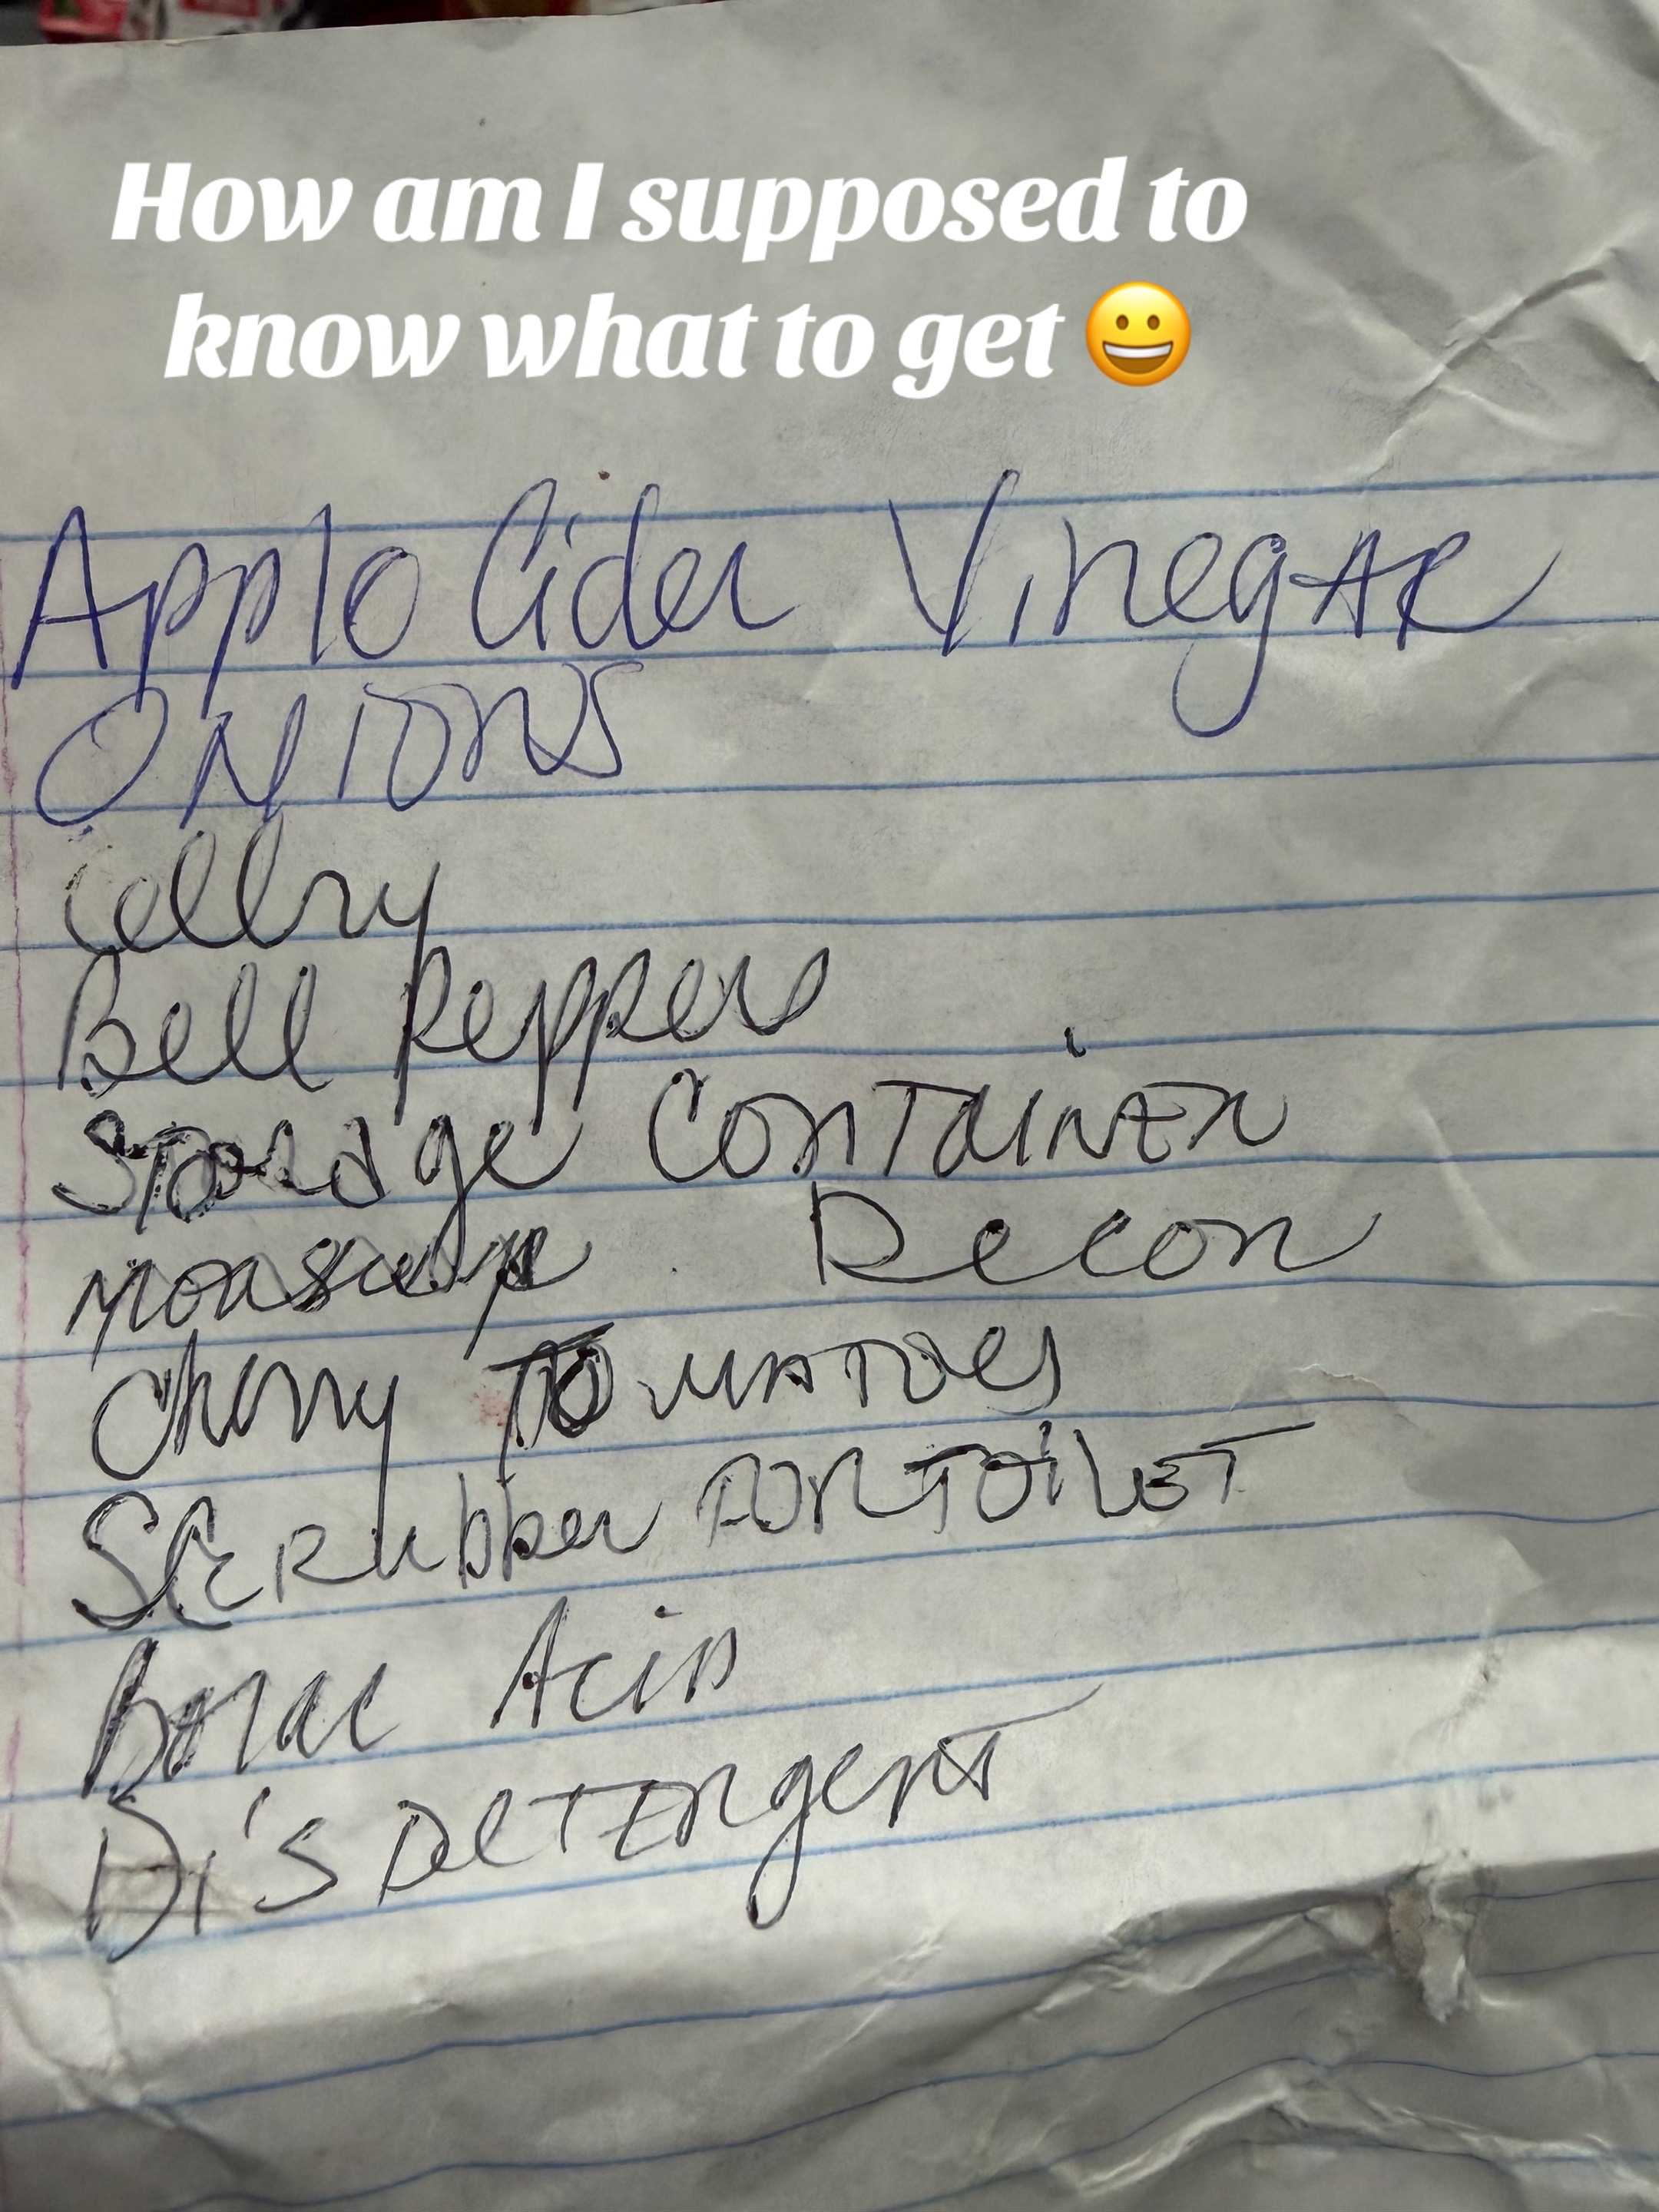 How am I supposed to
know what to get 😀
Applo Cider Vinegar
ONIONS
Cellry
Bell Peppers
Storage Container
Decon
Cherry Tomatoes
SCRubber FOR TOILET
Boric Acid
Di's Detergent